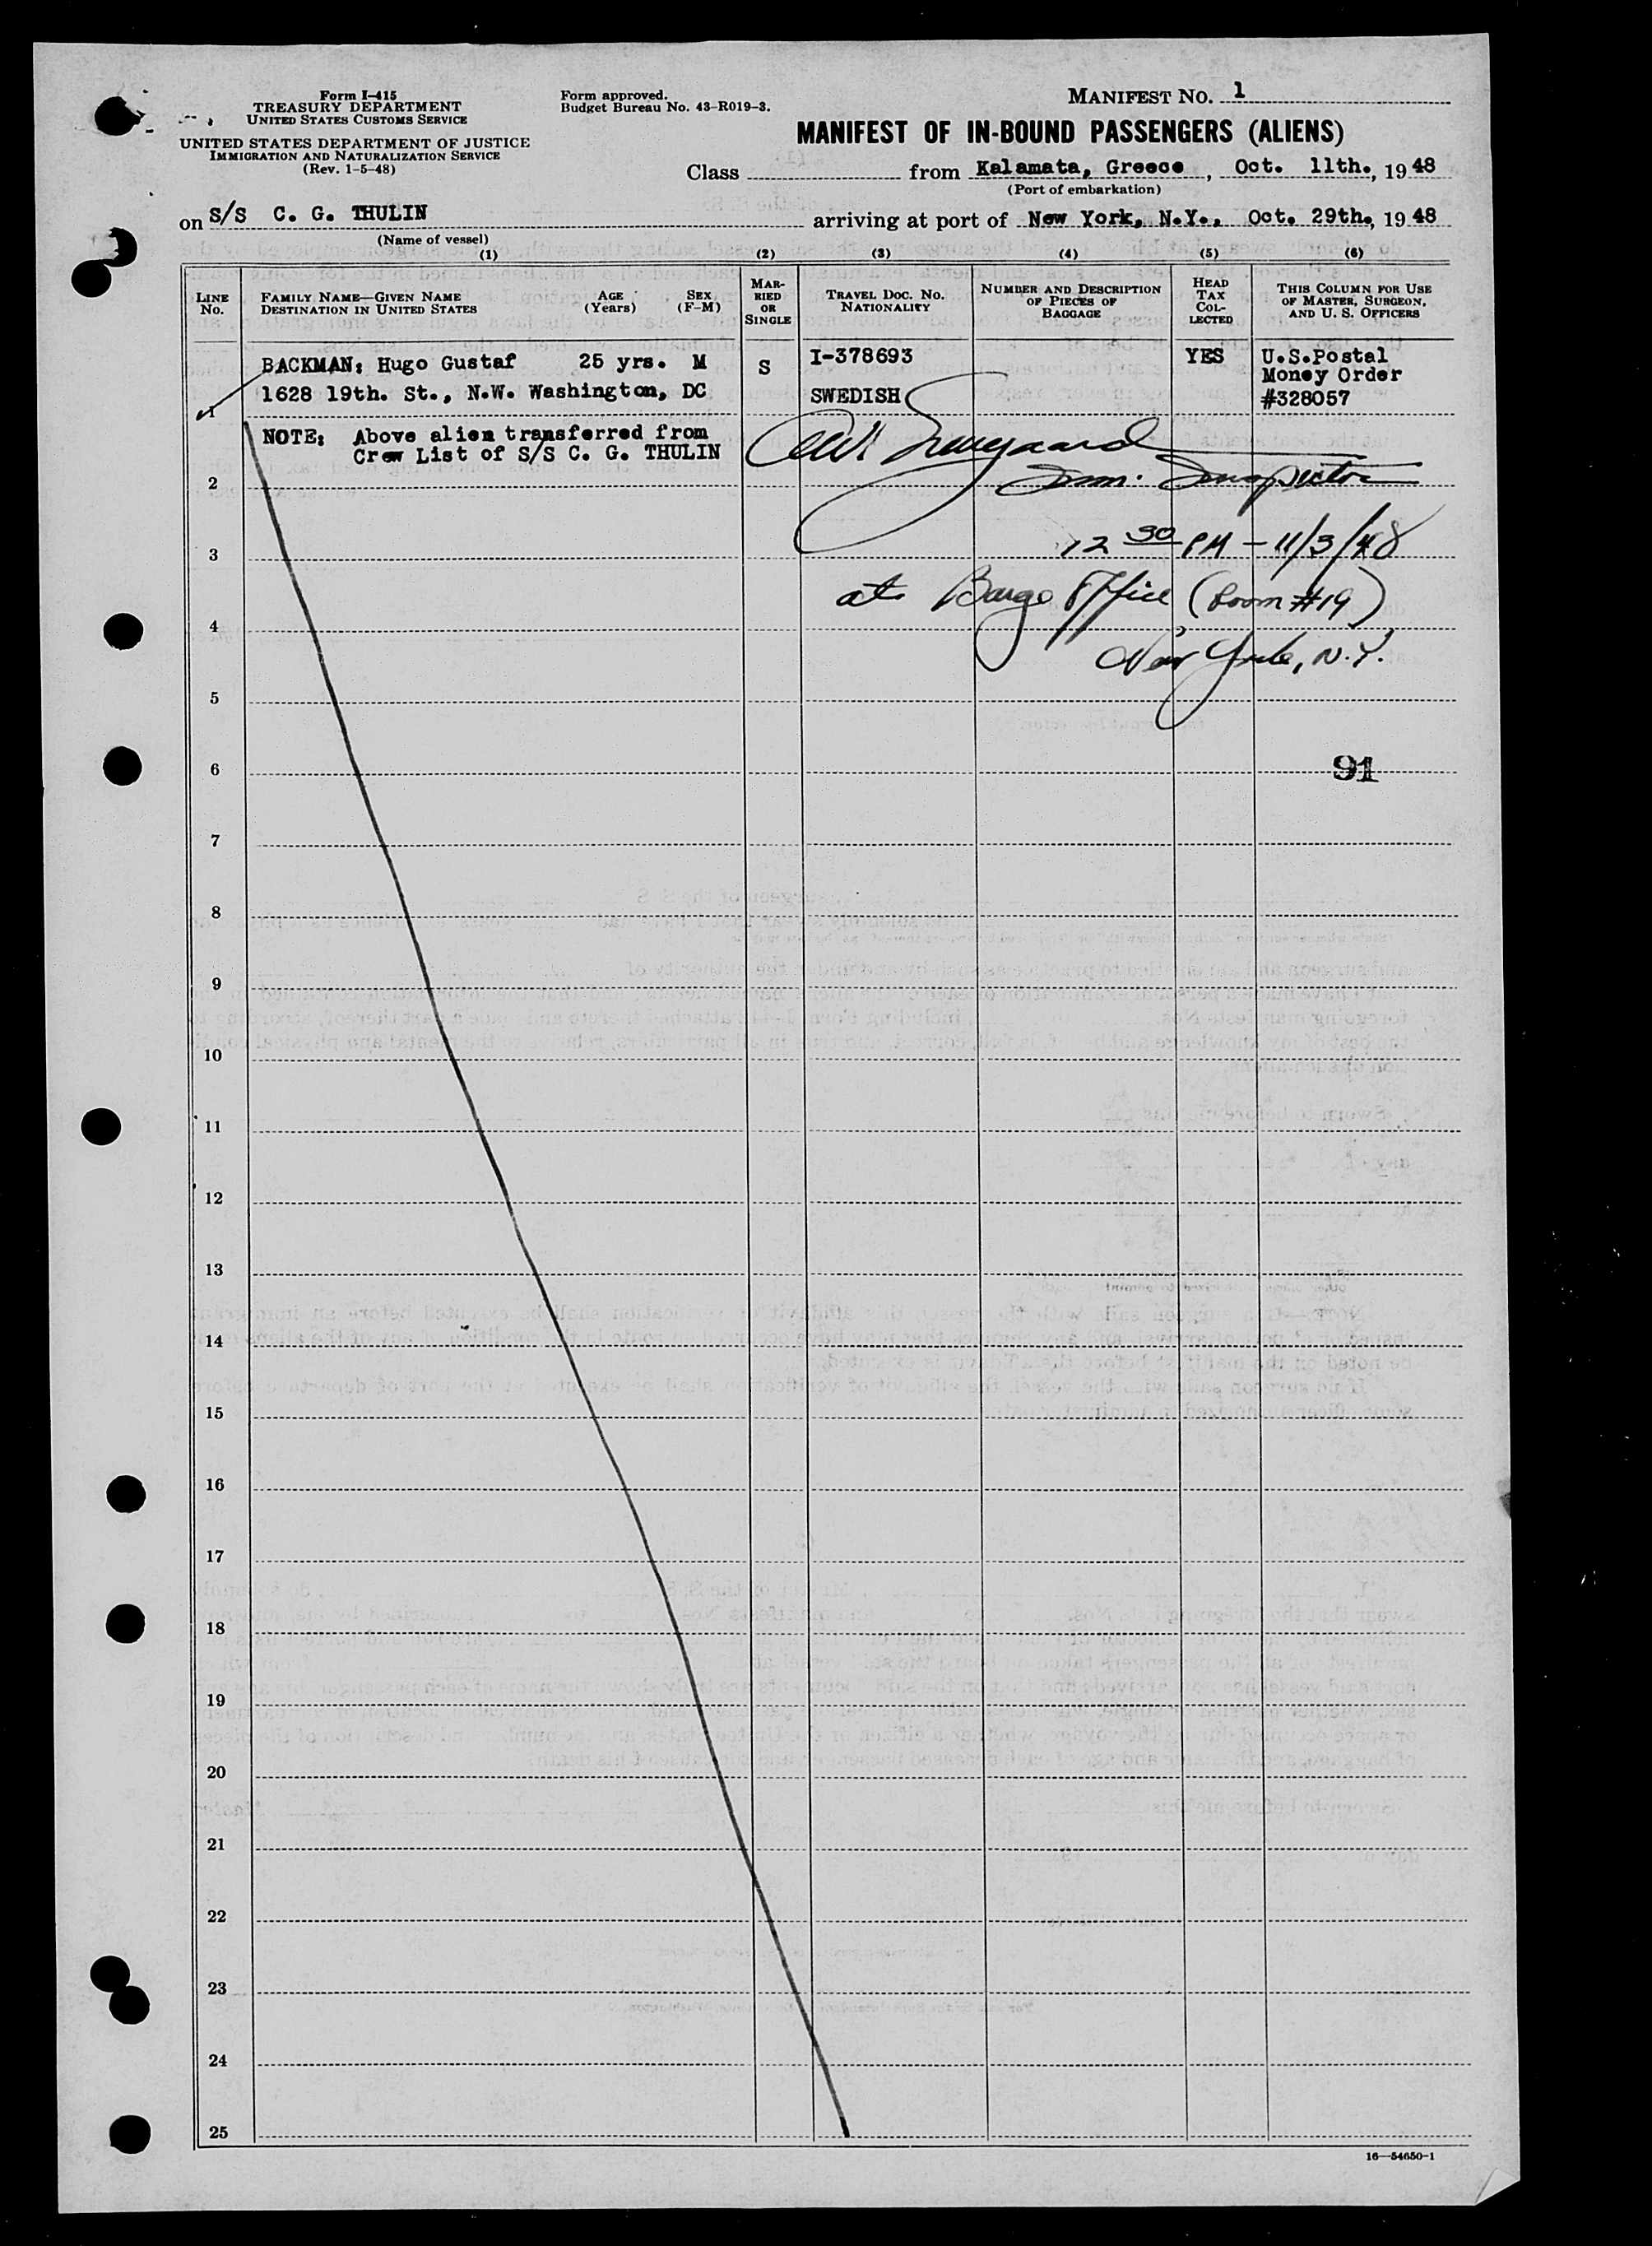 Form I-415
TREASURY DEPARTMENT
UNITED STATES CUSTOMS SERVICE
UNITED STATES DEPARTMENT OF JUSTICE
IMMIGRATION AND NATURALIZATION SERVICE
(Rev. 1-5-48)
Form approved.
Budget Bureau No. 43-R019-3.
MANIFEST NO. 1
MANIFEST OF IN-BOUND PASSENGERS (ALIENS)
Class from Kalamata, Greece, Oct. 11th., 1948
(Port of embarkation)
on S/S C. G. THULIN arriving at port of New York, N.Y., Oct. 29th., 1948
(Name of vessel)
(1) (2) (3) (4) (5) (6)
LINE No.
FAMILY NAME—GIVEN NAME
DESTINATION IN UNITED STATES
AGE (Years)
SEX (F-M)
MARRIED OR SINGLE
TRAVEL DOC. NO.
NATIONALITY
NUMBER AND DESCRIPTION OF PIECES OF BAGGAGE
HEAD TAX COLLECTED
THIS COLUMN FOR USE OF MASTER, SURGEON, AND U. S. OFFICERS
BACKMAN: Hugo Gustaf 25 yrs. M S I-378693 YES U.S.Postal
Money Order
1628 19th. St., N.W. Washington, DC SWEDISH #328057
1
NOTE: Above alien transferred from
Crew List of S/S C. G. THULIN
Imm. Inspector
2
12 30 PM - 11/3/48
3
at Barge Office (Room #19)
4
New York, N.Y.
5
6
91
7
8
9
10
11
12
13
14
15
16
17
18
19
20
21
22
23
24
25
16—54650-1